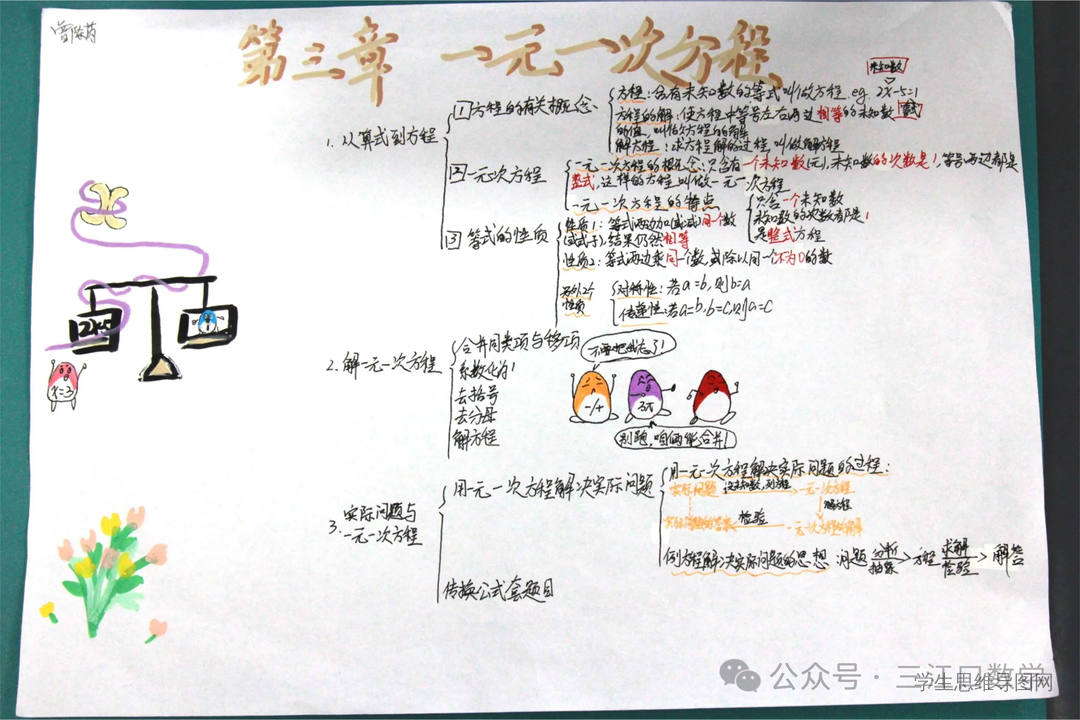 第三章 一元一次方程
未知数
1. 从算式到方程
1 方程的有关概念
方程:含有未知数的等式叫做方程. eg. 2x-5=1
方程的解:使方程中等号左右两边相等的未知数
的值,叫做方程的解
解方程:求方程解的过程,叫做解方程
2 一元一次方程
一元一次方程的概念:只含有一个未知数(元),未知数的次数是1,等号两边都是
整式,这样的方程叫做一元一次方程
一元一次方程的特点
只含一个未知数
未知数的次数都是1
是整式方程
3 等式的性质
性质1:等式两边加(或减)同一个数
(或式子),结果仍然相等
性质2:等式两边乘同一个数,或除以同一个不为0的数
另外2个
性质
对称性:若a=b,则b=a
传递性:若a=b,b=c,则a=c
12kg
x=3
2. 解一元一次方程
合并同类项与移项
系数化为1
去括号
去分母
解方程
不要把我忘了!
-/+
3x
别跑,咱俩能合并!
3. 实际问题与
一元一次方程
用一元一次方程解决实际问题
用一元一次方程解决实际问题的过程:
实际问题 设未知数,列方程 一元一次方程
解方程
实际问题的答案 检验 一元一次方程的解
列方程解决实际问题的思想
问题 分析 抽象 方程 求解 检验 解答
传换公式套题目
公众号·三江口数学
学生思维导图网